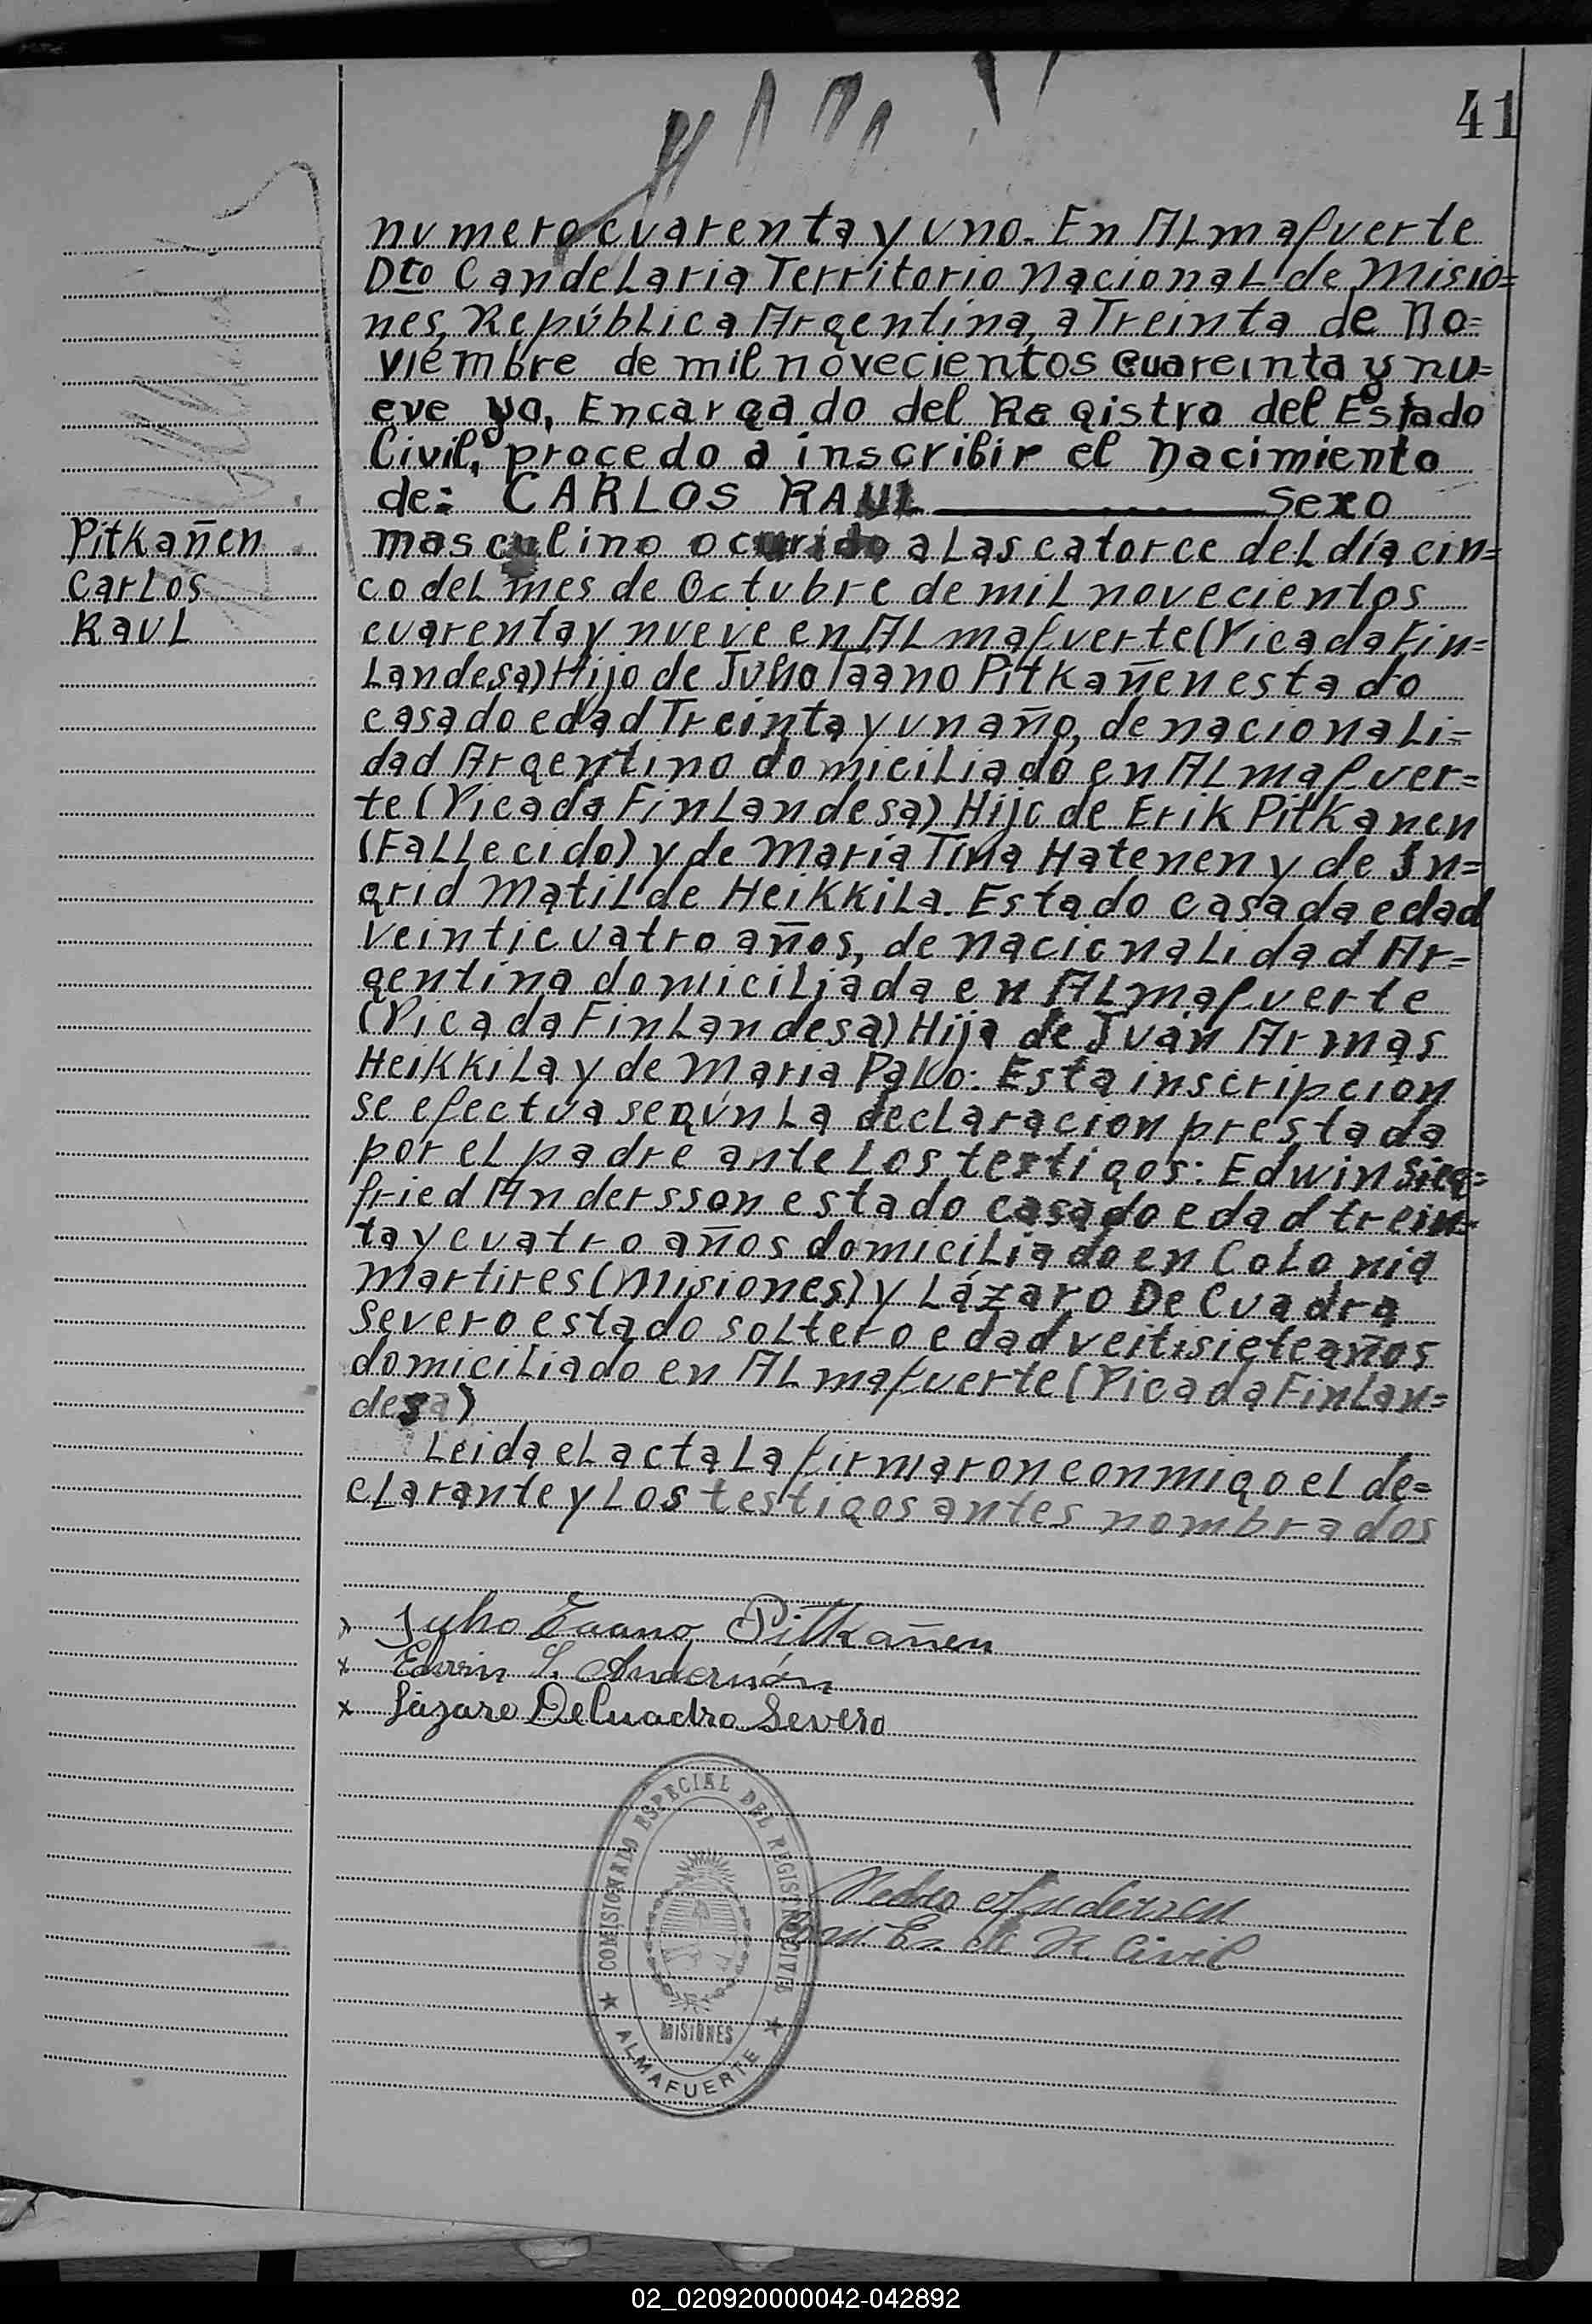 41
numero cuarenta y uno. En ALmafuerte
Dto CandeLaria Territorio NacionaL de Misio=
nes, RepúbLica Argentina, a Treinta de No=
viembre de mil novecientos cuareinta y nu=
eve yo, Encargado del Registro del Estado
Civil, procedo a inscribir el Nacimiento
de: CARLOS RAUL Sexo
masculino ocurido a Las catorce deL día cin=
co deL mes de Octubre de miL novecientos
cuarenta y nueve en ALmafuerte (Picada Fin=
Landesa) Hijo de Juho Taano Pitkañen estado
casado edad Treinta y un año, de nacionaLi=
dad Argentino domiciLiado en ALmafuer=
te (Picada FinLandesa) Hijo de Erik Pitkanen
(FaLLecido) y de María Tina Hatenen y de In=
grid MatiLde HeikkiLa. Estado casada edad
Veinticuatro años, de nacionaLidad Ar=
gentina domiciLiada en ALmafuerte
(Picada FinLandesa) Hija de Juan Armas
HeikkiLa y de Maria PaLo: Esta inscripción
se efectua según La decLaracion prestada
por eL padre ante Los testigos: Edwin Sieg=
fried Andersson estado casado edad trein=
ta y cuatro años domiciLiado en CoLonia
Martires (Misiones) y Lázaro De Cuadra
Severo estado soLtero edad veitisiete años
domiciLiado en ALmafuerte (Picada FinLan=
desa)
Leida eL acta La firmaron conmigo eL de=
cLarante y Los testigos antes nombrados
Pitkañen
CarLos
RauL
Juho Taano Pitkañen
x Edwin S. Andersón
x Lázaro DeCuadra Severo
COMISIONARIO ESPECIAL DEL REGISTRO CIVIL
MISIONES
ALMAFUERTE
Pedro Andersen
R. Civil
02_020920000042-042892